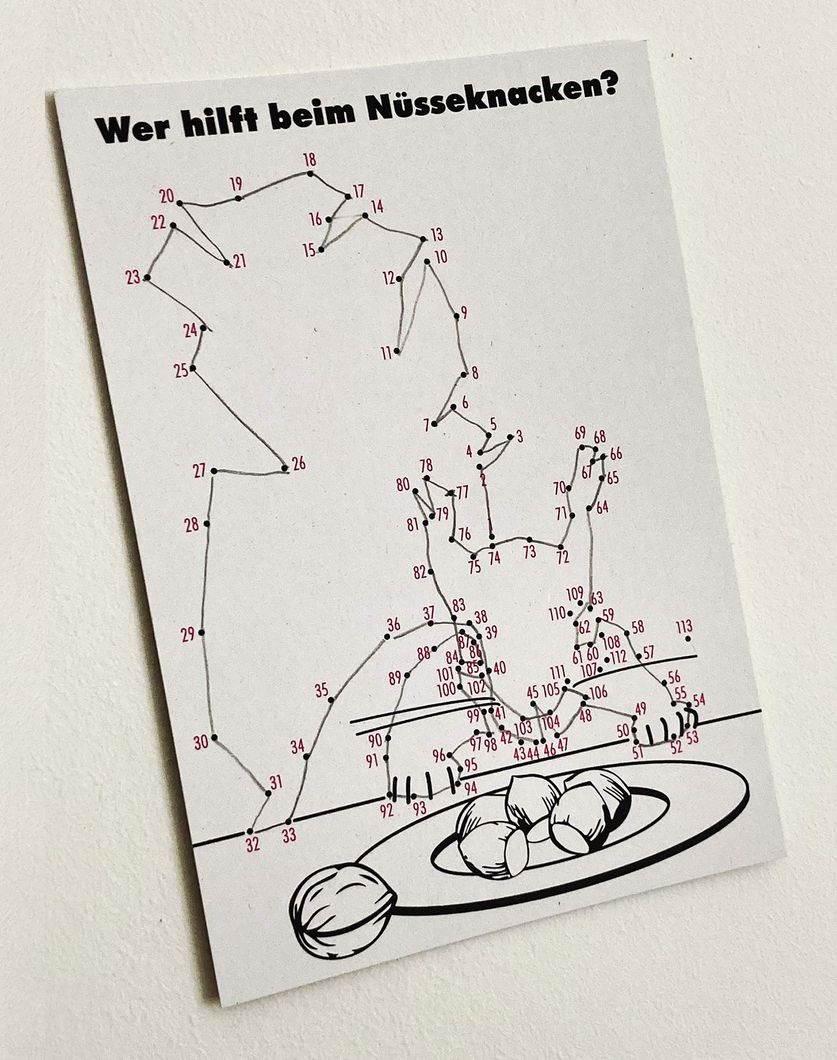 Wer hilft beim Nüsseknacken?
18
19
17
20
14
16
22
13
15
21
10
23
12
9
24
11
25
8
6
7
5
3
69
68
4
26
66
27
78
67
2
65
80
77
70
79
64
28
71
81
76
73
74
72
75
82
109
63
83
110
59
36
37
38
62
58
113
29
39
87
108
61
60
57
88
86
112
84
85
107
101
40
111
89
56
100
102
105
106
35
45
55
54
49
99
41
48
103
104
50
53
90
42
30
97
98
43
44
46
47
51
52
34
96
91
95
31
94
92
93
33
32